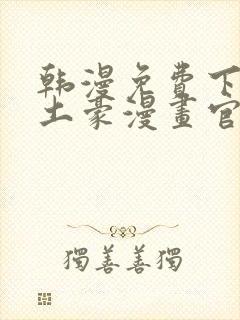 韩漫免費下
土豪漫畫官
獨善善獨